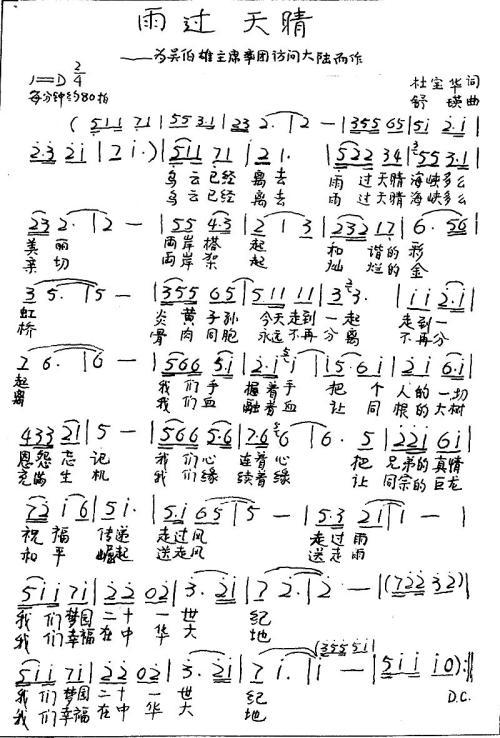 雨过天晴
——为吴伯雄主席率团访问大陆而作
1=D 2/4
杜宝华 词
每分钟约80拍
舒瑛 曲
(5 1 1 7 1 | 5 5 3. 1 | 2 3 2. | 2 — | 3 5 5 6 5 | 5 i 2. i |
2. 3 2 i | 7 i.) | 5 1 1 7 1 | 2 1. | 5 2 2 3 4 | 5 5 3. 1 |
乌云已经 离去 雨过天晴 海峡多么
乌云已经 离去 雨过天晴 海峡多么
2 3 2. | 2 — | 5 5 4. 3 | 2 1 3 | 2 3 2 1 7 | 6. 5 6 |
美丽 两岸搭起 和谐的彩
亲切 两岸架起 灿烂的金
3 5. | 5 — | 3 5 5 6 5 | 5 1 1 1 1 | 3 3. | i i 2. i |
虹 炎黄子孙 今天走到一起 走到一
桥 骨肉同胞 永远不再分离 不再分
2 6. | 6 — | 5 6 6 5. i | 2. i i | i 5. 6 i | 2 i 6. i |
起 我们手 握着手 把个人的一切
离 我们血 融着血 让同根的大树
4 3 3 2 1 | 5 — | 5 6 6 5. 6 | 7. 6 6 | 6. 5 | 2 2 i 6 i |
恩怨忘记 我们心 连着心 把兄弟的真情
充满生机 我们缘 续着缘 让同宗的巨龙
7 2 i 6 | 5 i. | 5. i 6 5 | 5 — | 5. 3 2 i | i — |
祝福传递 走过风 走过雨
和平崛起 送走风 送走雨
5 i i 7 i | 2 2 0 2 | 3. 2 i | 7 2. | 2 — | (7 2 2 3 2) |
我们梦圆二十一世纪
我们幸福在中华大地
(3 5 5 5 i)
5 i i 7 i | 2 2 0 2 | 3. 2 i | 7 i. | i — | 5 i i i 0) :||
我们梦圆二十一世纪 D.C.
我们幸福在中华大地